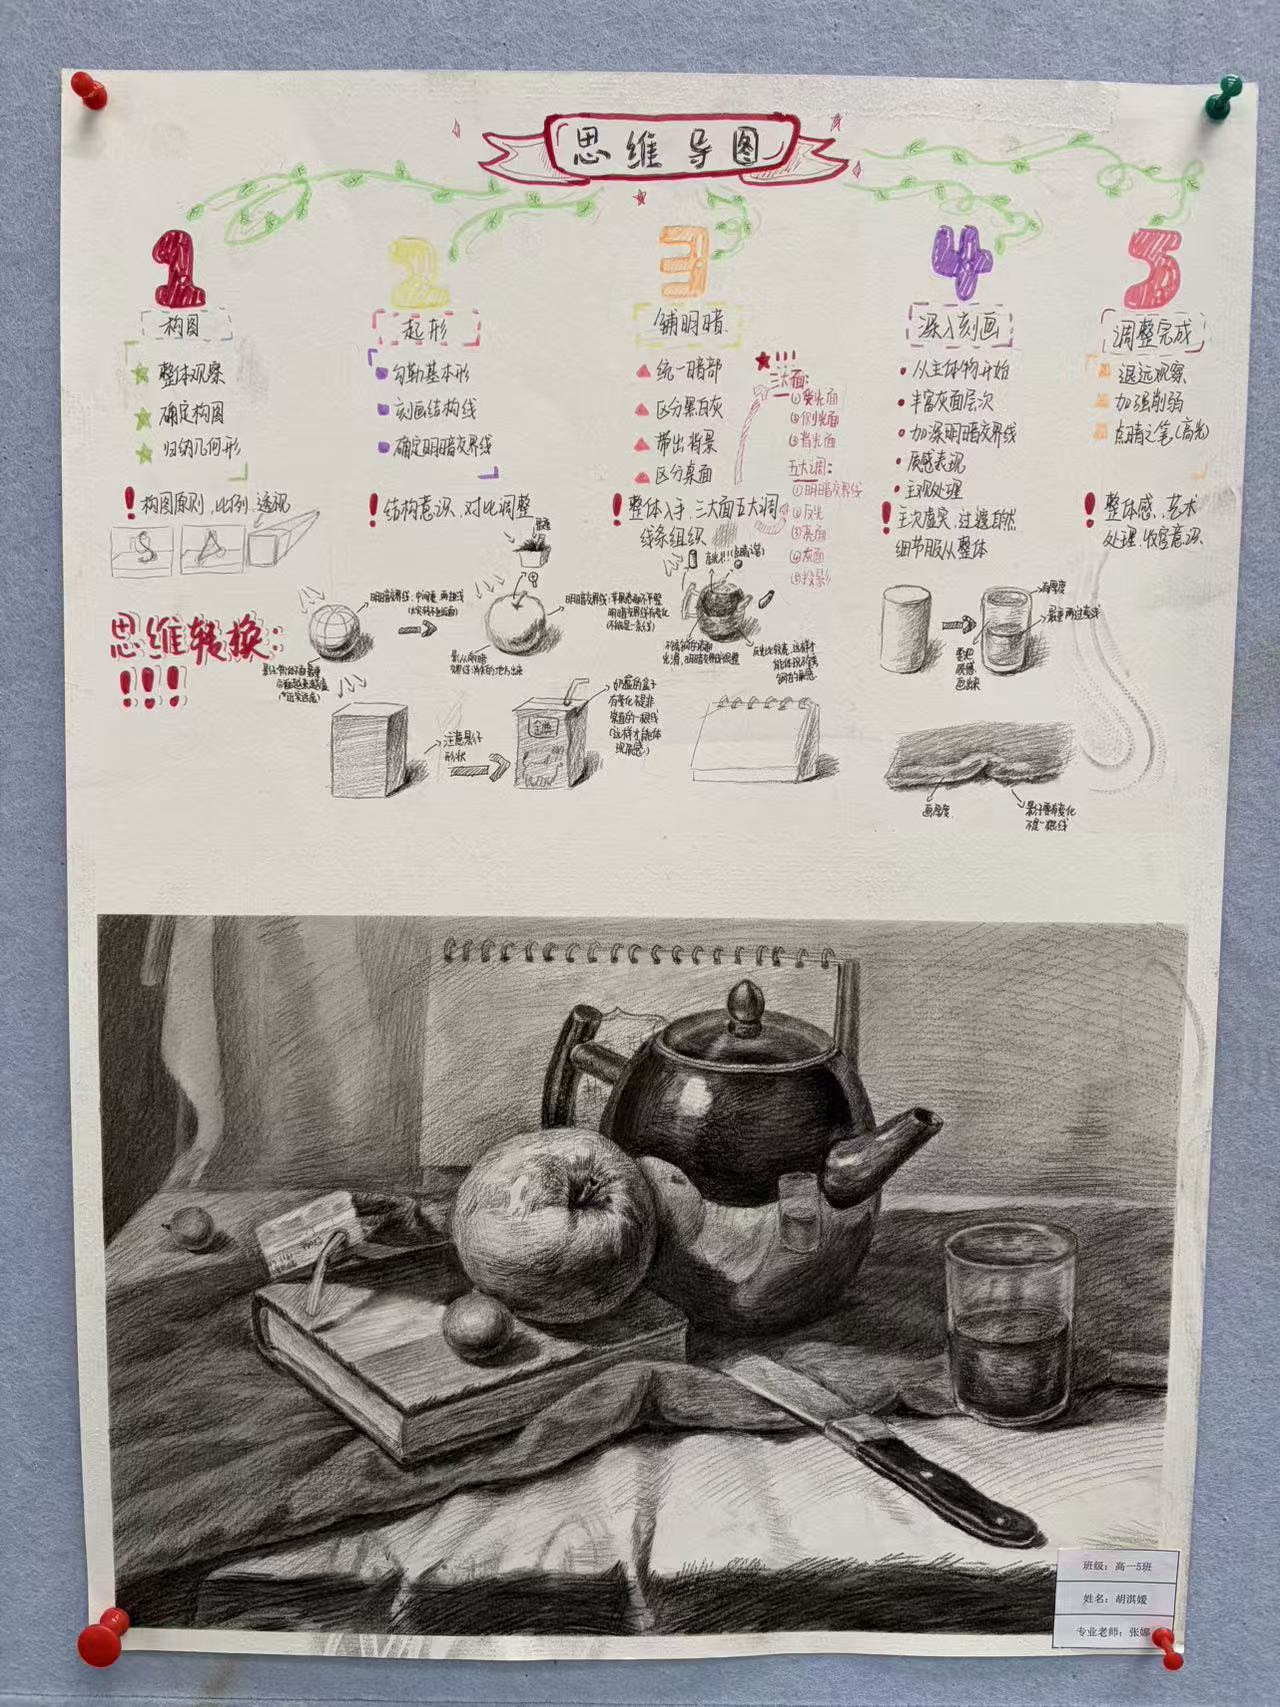 思维导图
1
构图
整体观察
确定构图
归纳几何形
构图原则,比例,透视
2
起形
勾勒基本形
刻画结构线
确定明暗交界线
结构意识、对比调整
3
铺明暗
统一暗部
区分黑白灰
带出背景
区分桌面
整体入手、三大面五大调
线条组织
三大面:
①受光面
②侧光面
③背光面
五大调:
①明暗交界线
②反光
③亮面
④灰面
⑤投影
4
深入刻画
从主体物开始
丰富灰面层次
加深明暗交界线
质感表现
主观处理
主次虚实、过渡自然
细节服从整体
5
调整完成
退远观察
加强削弱
点睛之笔(高光)
整体感、艺术
处理、收容意识
思维转换:
!!!
明暗交界线:中间重,两边浅
明暗交界线:苹果表面不平整
明暗交界线有变化
(不能是一条线)
注意影子
形状
有变化不是非
常直的一根线
(这样才能体
现质感)
有厚度
要把
质感
画出来
画厚度
影子要有变化
不是一根线
班级:高一5班
姓名:胡淇媛
专业老师:张娜